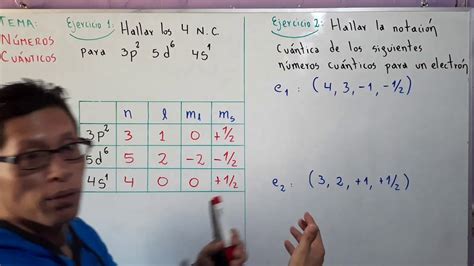 TEMA:
NÚMEROS
CUÁNTICOS
Ejercicio 1: Hallar los 4 N.C.
para 3p² 5d⁶ 4s¹
n l mₗ mₛ
3p² 3 1 0 +1/2
5d⁶ 5 2 -2 -1/2
4s¹ 4 0 0 +1/2
Ejercicio 2: Hallar la notación
Cuántica de los siguientes
números cuánticos para un electrón
e₁: (4, 3, -1, -1/2)
e₂: (3, 2, +1, +1/2)